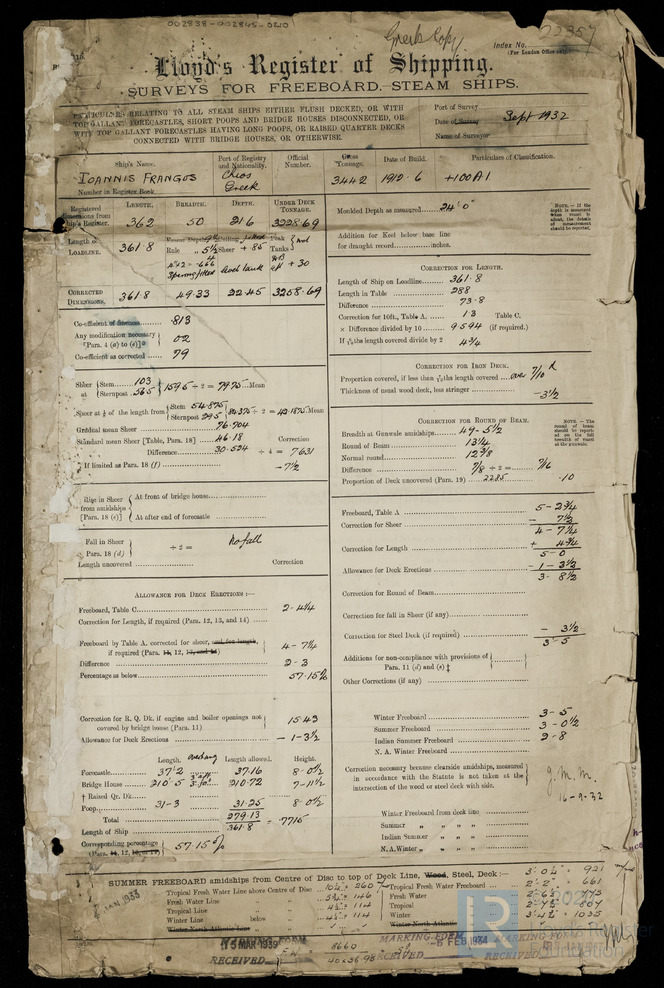 002838-002845-0210
Greek Copy
Index No. 22357
(For London Office only)
Lloyd's Register of Shipping.
SURVEYS FOR FREEBOARD.—STEAM SHIPS.
PARTICULARS RELATING TO ALL STEAM SHIPS EITHER FLUSH DECKED, OR WITH
TOP GALLANT FORECASTLES, SHORT POOPS AND BRIDGE HOUSES DISCONNECTED, OR
WITH TOP GALLANT FORECASTLES HAVING LONG POOPS, OR RAISED QUARTER DECKS
CONNECTED WITH BRIDGE HOUSES, OR OTHERWISE.
Port of Survey
Date of Survey Sept 1932
Name of Surveyor
Ship's Name. Port of Registry and Nationality. Official Number. Gross Tonnage. Date of Build. Particulars of Classification.
IOANNIS FRANGOS Chios Greek 3442 1912 . 6 +100A1
Number in Register Book
Registered dimensions from Ship's Register. LENGTH. BREADTH. DEPTH. UNDER DECK TONNAGE.
362 50 21.6 3228.69
Length of LOADLINE. 361.8
CORRECTED DIMENSIONS. 361.8 49.33 22.45 3258.69
Co-efficient of fineness .813
Any modification necessary [Para. 4 (a) to (e)] .02
Co-efficient as corrected .79
Sheer at Stem 103 Sternpost 56.5 } 159.5 ÷ 2 = 79.75 Mean
Sheer at 1/8 of the length from Stem 54.875 Sternpost 29.5 } 84.375 ÷ 2 = 42.1875 Mean
Gradual mean Sheer 76.704
Standard mean Sheer [Table, Para. 18] 46.18 Correction
Difference 30.524 ÷ 4 = 7.631
If limited as Para. 18 (f) -7½
Rise in Sheer from amidships [Para. 18 (e)] At front of bridge house
At after end of forecastle
Fall in Sheer Para. 18 (d) ÷ 2 = No fall
Length uncovered Correction
ALLOWANCE FOR DECK ERECTIONS :—
Freeboard, Table C 2-4¼
Correction for Length, if required (Para. 12, 13, and 14)
Freeboard by Table A, corrected for sheer, and for length, if required (Para. 11, 12, 13, and 14) 4-7¼
Difference 2-3
Percentage as below 57.15%
Correction for R. Q. Dk. if engine and boiler openings not covered by bridge house (Para. 11) 15.43
Allowance for Deck Erections -1-3½
Length. overhang Length allowed. Height.
Forecastle 37'2 37.16 8-0½
Bridge House 210'5 210.72 7-11½
† Raised Qr. Dk.
Poop 31-3 31.25 8-0½
Total 279.13
Length of Ship 361.8 = .7715
Corresponding percentage (Para. 11, 12, 13, or 14) 57.15%
Moulded Depth as measured 24'0"
Addition for Keel below base line
for draught record inches.
NOTE.—If the depth is amount taken when vessel is afloat, the details of measurement should be reported.
CORRECTION FOR LENGTH.
Length of Ship on Loadline 361.8
Length in Table 288
Difference 73.8
Correction for 10ft., Table A. 1.3 Table C.
× Difference divided by 10 9.594 (if required.)
If 6/10 the length covered divide by 2 4¾
CORRECTION FOR IRON DECK.
Proportion covered, if less than 7/10 the length covered over 7/10
Thickness of usual wood deck, less stringer -3½
CORRECTION FOR ROUND OF BEAM.
Breadth at Gunwale amidships 49-5½
Round of Beam 13¼
Normal round 12⅜
Difference ⅞ ÷ 2 = 7/16
Proportion of Deck uncovered (Para. 19) .2285 .10
NOTE.—The round of beam should be reported on the full breadth of vessel at the gunwale.
Freeboard, Table A 5-2¾
Correction for Sheer - 7½
4-7¼
Correction for Length + 4¾
5-0
Allowance for Deck Erections -1-3½
3-8½
Correction for Round of Beam
Correction for fall in Sheer (if any)
Correction for Steel Deck (if required) - 3½
3-5
Additions for non-compliance with provisions of Para. 11 (d) and (e) ‡
Other Corrections (if any)
Winter Freeboard 3-5
Summer Freeboard 3-0½
Indian Summer Freeboard 2-8
N. A. Winter Freeboard
Correction necessary because clearside amidships, measured
in accordance with the Statute is not taken at the
intersection of the wood or steel deck with side.
J.M.M.
16-9-32
Winter Freeboard from deck line
Summer " " "
Indian Summer " " "
N.A. Winter " " "
SUMMER FREEBOARD amidships from Centre of Disc to top of Deck Line, Wood, Steel, Deck :— 3'.0¼" = 921
Tropical Fresh Water Line above Centre of Disc 10¼ = 260
Fresh Water Line " 5¾ = 146
Tropical Line " 4½ = 114
Winter Line below " 4½ = 114
Winter North Atlantic Line
Tropical Fresh Water Freeboard 2'.2" = 661
Fresh Water " 775
Tropical " 807
Winter " 3'.4¾ = 1035
Winter North Atlantic
JAN 1933
15 MAR 1939
RECEIVED
8660
MARKING FORM
-6 FEB 1934
RECEIVED
MARKING-FORM
RECEIVED
LR
Lloyd's Register
Foundation